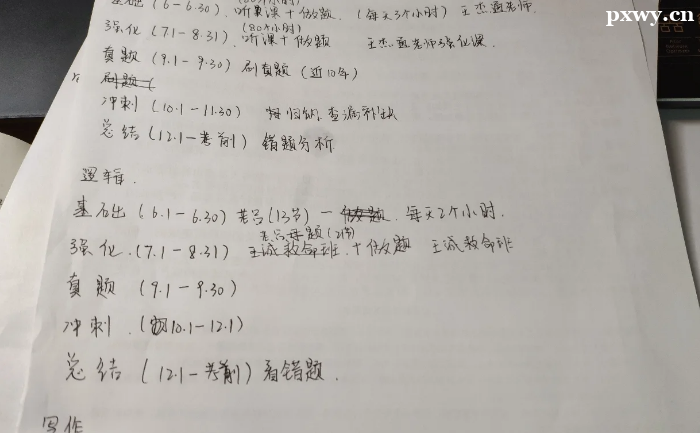 pxwy.cn
基础(6-6.30).听课+做题.(每天3个小时)王杰通老师.
(80个小时)
强化(7.1-8.31).听课+做题 王杰通老师强化课.
真题(9.1-9.30)刷真题(近10年)
刷题(
冲刺(10.1-11.30) 归纳,查漏补缺
总结(12.1-考前)错题分析
逻辑.
基础(6.1-6.30)老吕(13节)一做题.每天2个小时.
老吕母题(2倍)
强化.(7.1-8.31)王诚救命班.+做题 王诚救命班
真题(9.1-9.30)
冲刺.(10.1-12.1)
总结(12.1-考前)看错题.
写作